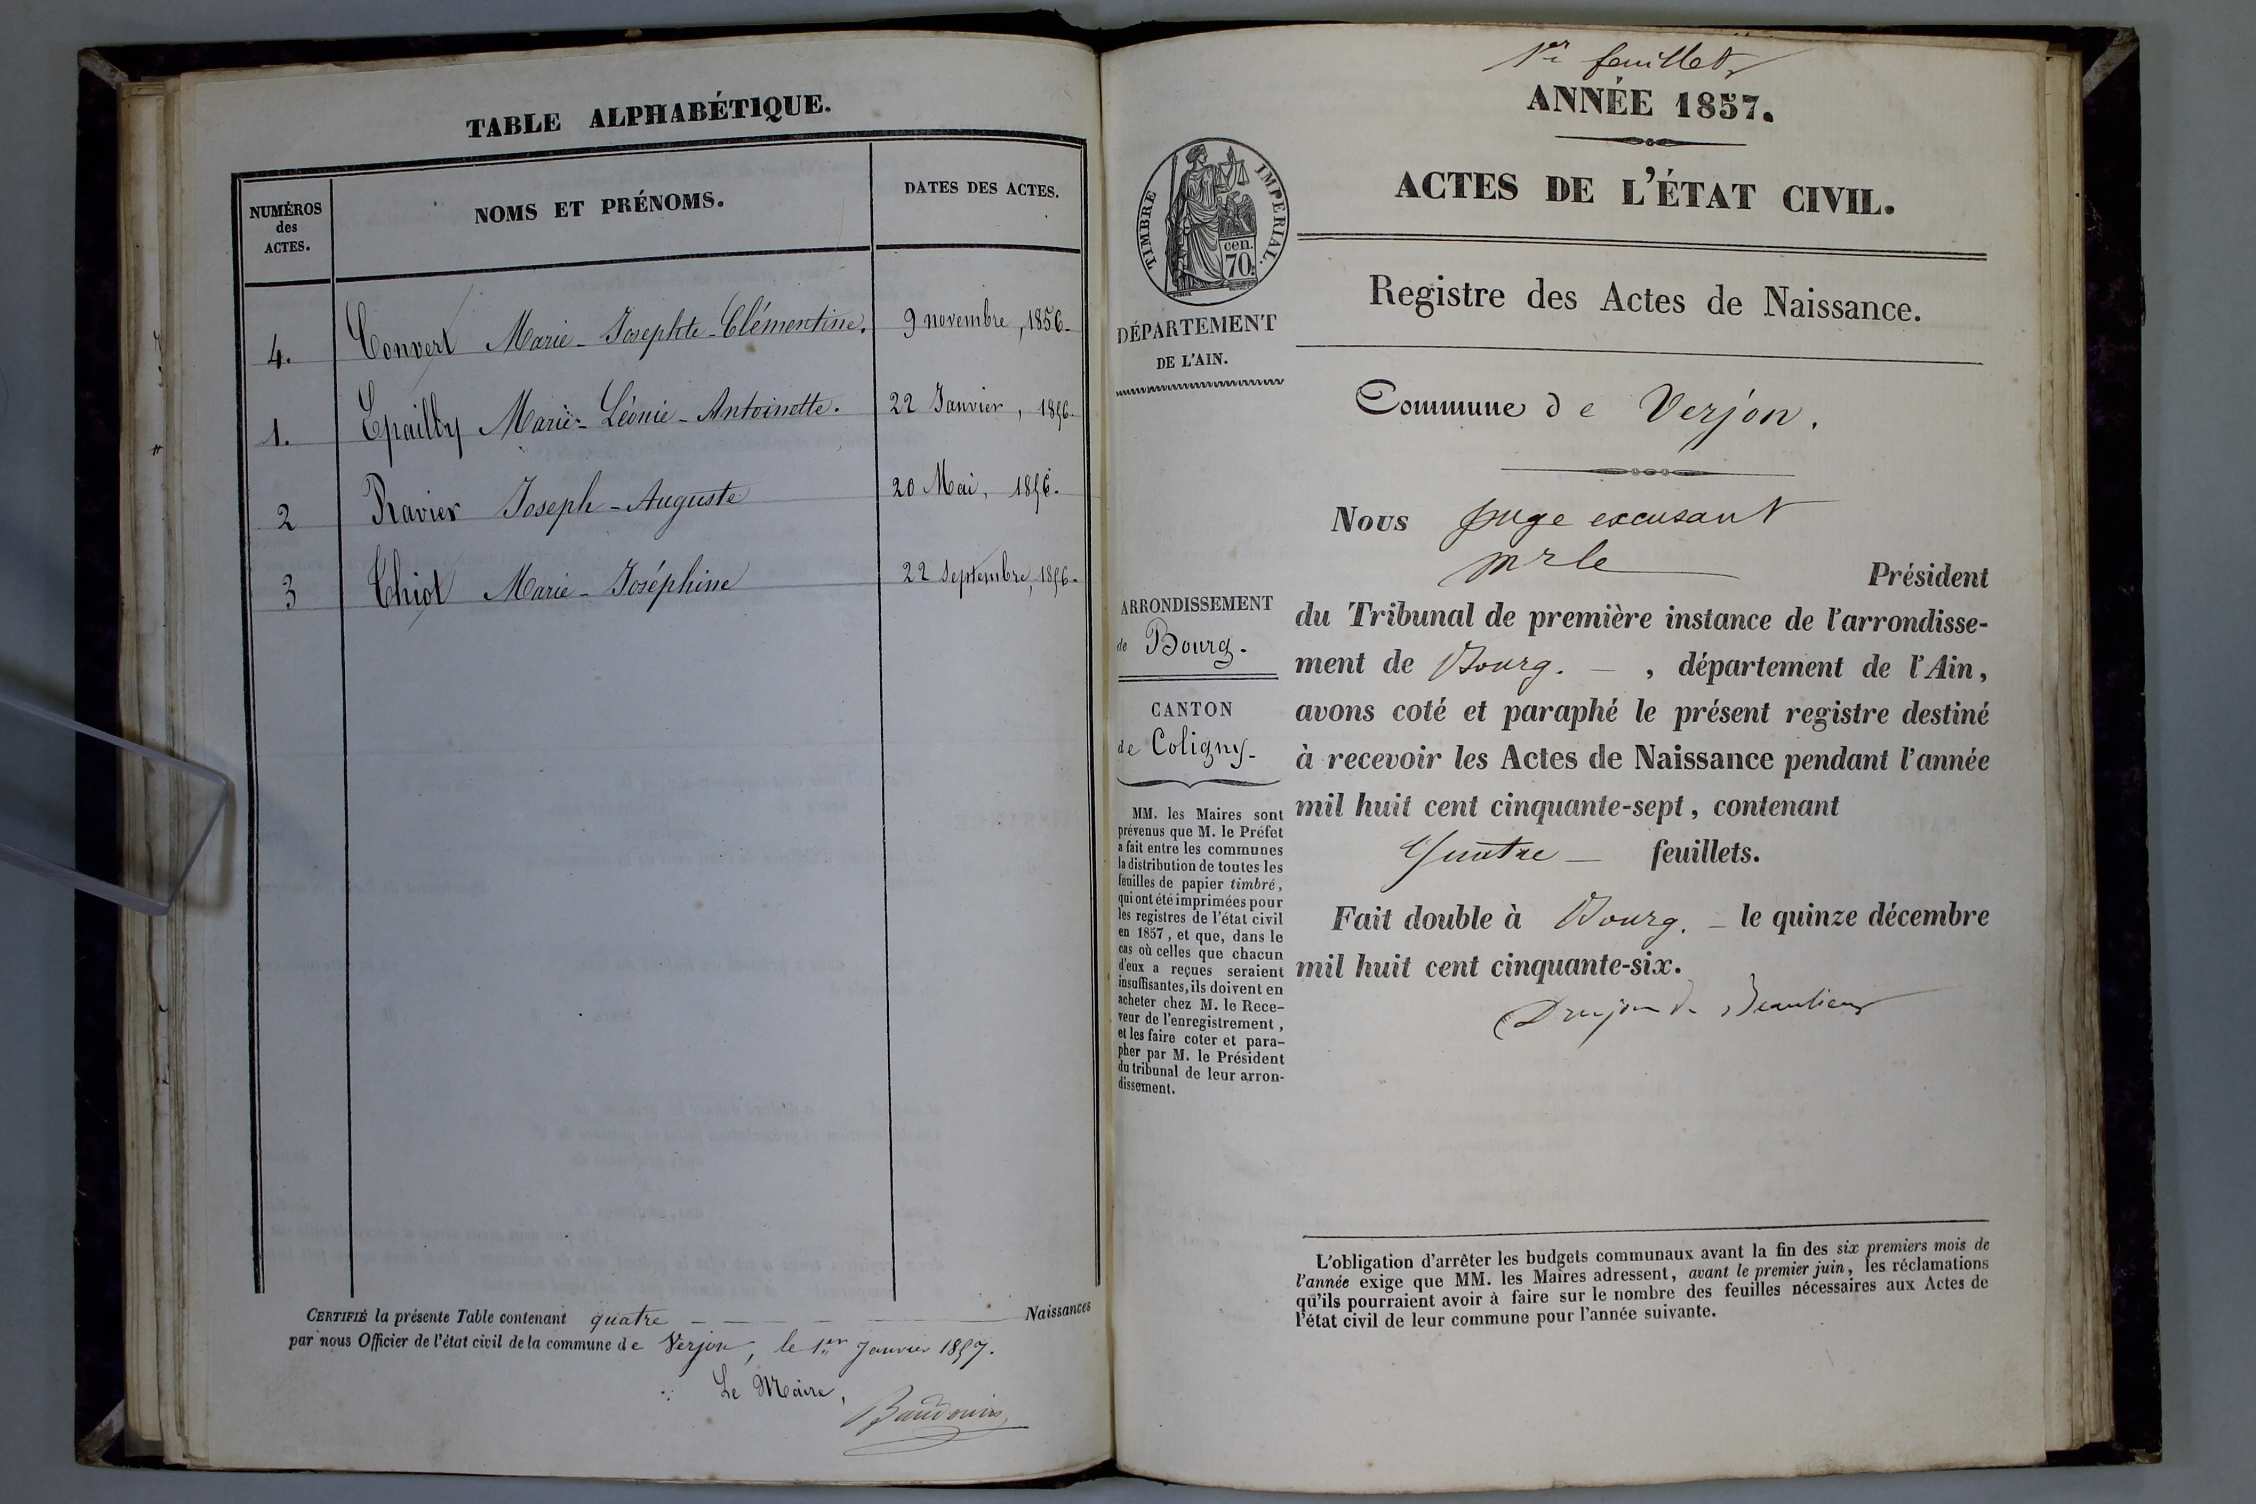 TABLE ALPHABÉTIQUE.
NUMÉROS
des
ACTES.
NOMS ET PRÉNOMS.
DATES DES ACTES.
4. Convert Marie - Josephte - Clémentine. 9 novembre, 1856.
1. Epailly Marie - Léonie - Antoinette. 22 Janvier, 1856.
2 Ravier Joseph - Auguste 20 Mai, 1856.
3 Chiot Marie - Joséphine 22 Septembre, 1856.
CERTIFIÉ la présente Table contenant quatre Naissances
par nous Officier de l'état civil de la commune de Verjon, le 1er Janvier 1857.
Le Maire,
Baudouin
1er feuillet
ANNÉE 1857.
ACTES DE L'ÉTAT CIVIL.
TIMBRE IMPERIAL.
70 cen.
DÉPARTEMENT
DE L'AIN.
Registre des Actes de Naissance.
Commune de Verjon.
Nous juge excusant
Mr le Président
du Tribunal de première instance de l'arrondisse-
ment de Bourg. - , département de l'Ain,
avons coté et paraphé le présent registre destiné
à recevoir les Actes de Naissance pendant l'année
mil huit cent cinquante-sept, contenant
Quatre - feuillets.
Fait double à Bourg. - le quinze décembre
mil huit cent cinquante-six.
Drujon de Beaulieu
ARRONDISSEMENT
de Bourg.
CANTON
de Coligny
MM. les Maires sont
prévenus que M. le Préfet
a fait entre les communes
la distribution de toutes les
feuilles de papier timbré,
qui ont été imprimées pour
les registres de l'état civil
en 1857, et que, dans le
cas où celles que chacun
d'eux a reçues seraient
insuffisantes, ils doivent en
acheter chez M. le Rece-
veur de l'enregistrement,
et les faire coter et para-
pher par M. le Président
du tribunal de leur arron-
dissement.
L'obligation d'arrêter les budgets communaux avant la fin des six premiers mois de
l'année exige que MM. les Maires adressent, avant le premier juin, les réclamations
qu'ils pourraient avoir à faire sur le nombre des feuilles nécessaires aux Actes de
l'état civil de leur commune pour l'année suivante.